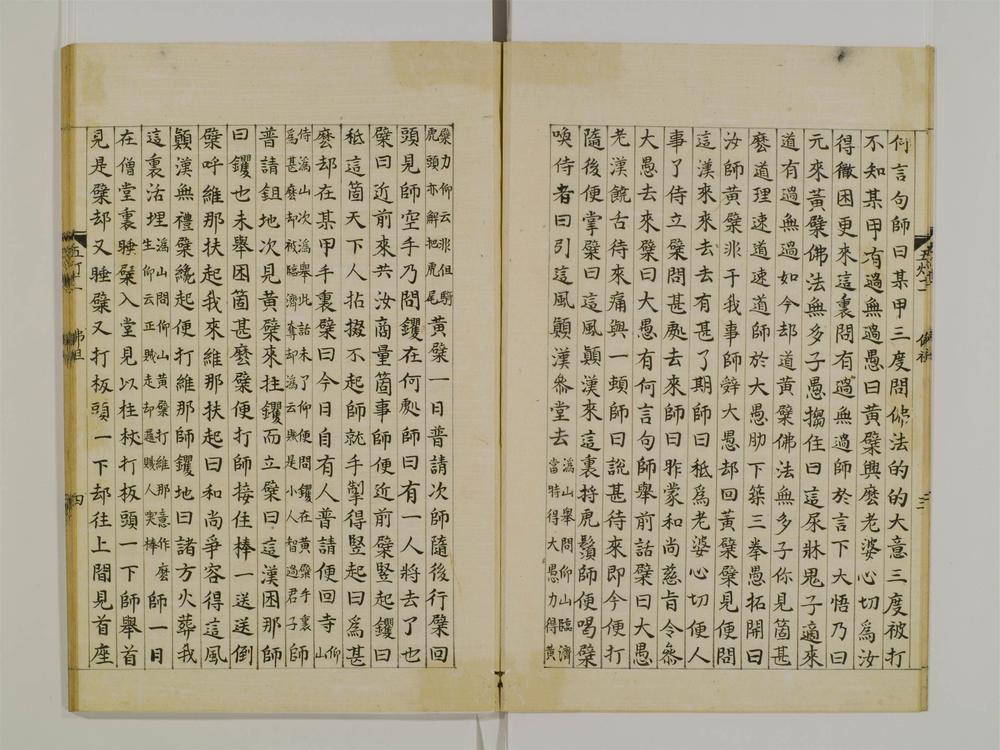 何言句師曰某甲三度問佛法的的大意三度被打
不知某甲有過無過愚曰黃檗與麼老婆心切為汝
得徹困更來這裏問有過無過師於言下大悟乃曰
元來黃檗佛法無多子愚搊住曰這尿牀鬼子適來
道有過無過如今却道黃檗佛法無多子你見箇甚
麼道理速道速道師於大愚肋下築三拳愚拓開曰
汝師黃檗非干我事師辭大愚却回黃檗檗見便問
這漢來來去去有甚了期師曰秪為老婆心切便人
事了侍立檗問甚處去來師曰昨蒙和尚慈旨令叅
大愚去來檗曰大愚有何言句師舉前話檗曰大愚
老漢饒舌待來痛與一頓師曰說甚待來即今便打
隨後便掌檗曰這風顛漢來這裏捋虎鬚師便喝檗
喚侍者曰引這風顛漢叅堂去
溈山舉問仰山臨濟
當時得大愚力得黃
檗力仰云非但騎
虎頭亦解把虎尾
黃檗一日普請次師隨後行檗回
頭見師空手乃問钁在何處師曰有一人將去了也
檗曰近前來共汝商量箇事師便近前檗豎起钁曰
秪這箇天下人拈掇不起師就手掣得豎起曰為甚
麼却在某甲手裏檗曰今日自有人普請便回寺
仰山
侍溈山次溈舉此話未了仰便問钁在黃檗手裏
為甚麼却被臨濟奪却溈云賊是小人智過君子
師
普請鉏地次見黃檗來拄钁而立檗曰這漢困那師
曰钁也未舉困箇甚麼檗便打師接住棒一送送倒
檗呼維那扶起我來維那扶起曰和尚爭容得這風
顛漢無禮檗纔起便打維那師钁地曰諸方火葬我
這裏活埋
溈山問仰山黃檗打維那意作麼
生仰云正賊走却邏賊人喫棒
師一日
在僧堂裏睡檗入堂見以柱杖打板頭一下師舉首
見是檗却又睡檗又打板頭一下却往上間見首座
四